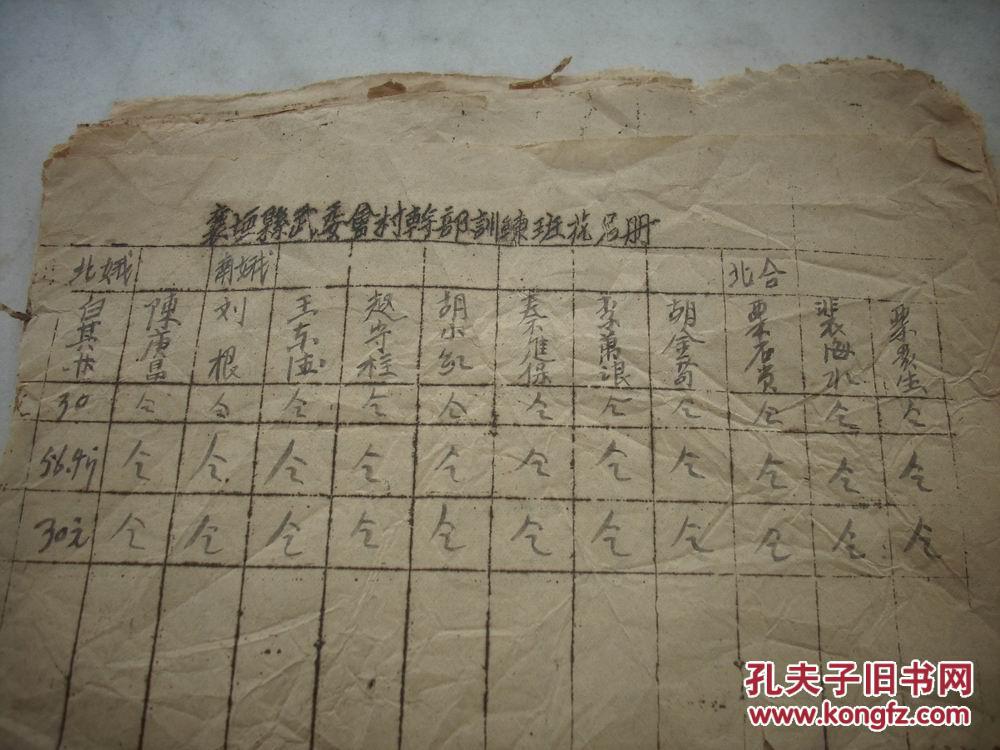 襄垣縣武委會村幹部訓練班花名册
北娥 南娥 北合
白其 陳庚昌 刘根 王东 赵守柱 胡小红 秦進保 萬 胡金 栗 貴 裴海水 栗 生
30 仝 仝 仝 仝 仝 仝 仝 仝 仝 仝 仝
56.4 仝 仝 仝 仝 仝 仝 仝 仝 仝 仝 仝
30元 仝 仝 仝 仝 仝 仝 仝 仝 仝 仝 仝
孔夫子旧书网
www.kongfz.com